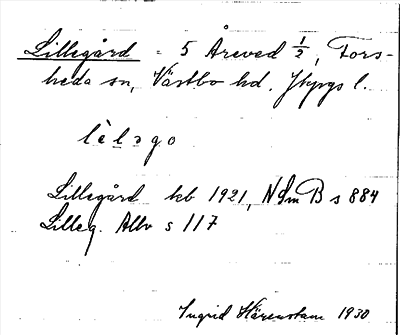 Lillegård = 5 Åreved 1/2, Fors-
heda sn, Västbo hd. Jkpgs l.
lèləgo
Lillegård kb 1921, NSmB s 884
Lilleg. Allv s 117
Ingrid Härenstam 1930